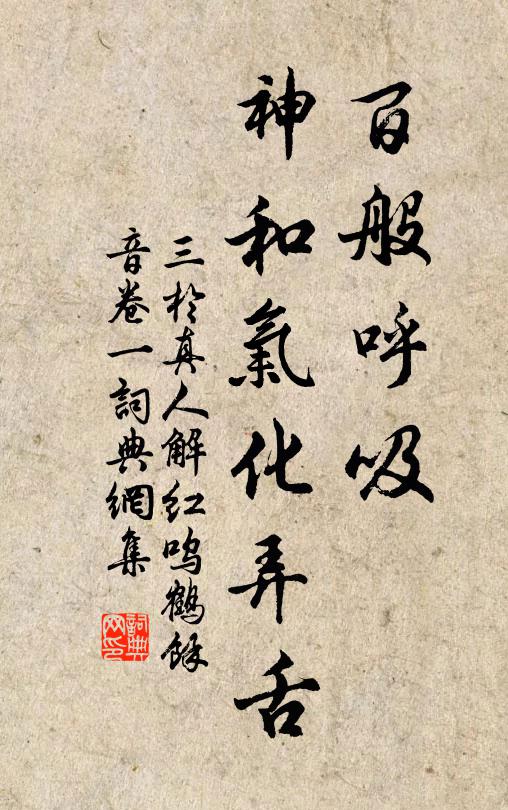 百般呼吸
神和氣化弄舌
三於真人解红鸣鶴餘
音卷一詞典網集
詞典
网印